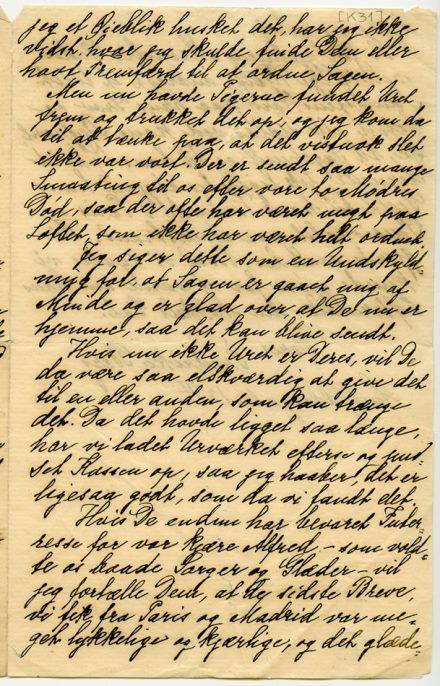 [K31]
jeg et Øieblik husket det, har jeg ikke
vidst, hvor jeg skulde finde Dem eller
havt Fremfærd til at ordne Sagen.
Men nu havde Pigerne fundet Uret
frem og trukket det op, og jeg kom da
til at tænke paa, at det vistnok slet
ikke var vort. Der er sendt saa mange
Smaating til os efter vore to Mödres
Död, saa der ofte har været meget paa
Loftet, som ikke har været helt ordnet.
Jeg siger dette som en Undskyld-
ning for, at Sagen er gaaet mig af
Minde og er glad over, at De nu er
hjemme, saa det kan blive sendt.
Hvis nu ikke Uret er Deres, vil De
da være saa elskværdig at give det
til en eller anden, som kan trænge
det. Da det havde ligget saa længe,
har vi ladet Urværket efterse og pud-
set Kassen op, saa jeg haaber, det er
ligesaa godt, som da vi fandt det.
Hvis De endnu har bevaret Inte-
resse for vor kjære Alfred – som vold-
te os baade Sorger og Glæder – vil
jeg fortælle Dem, at de sidste Breve,
vi fik fra Paris og Madrid var me-
get lykkelige og kjærlige, og det glæde-